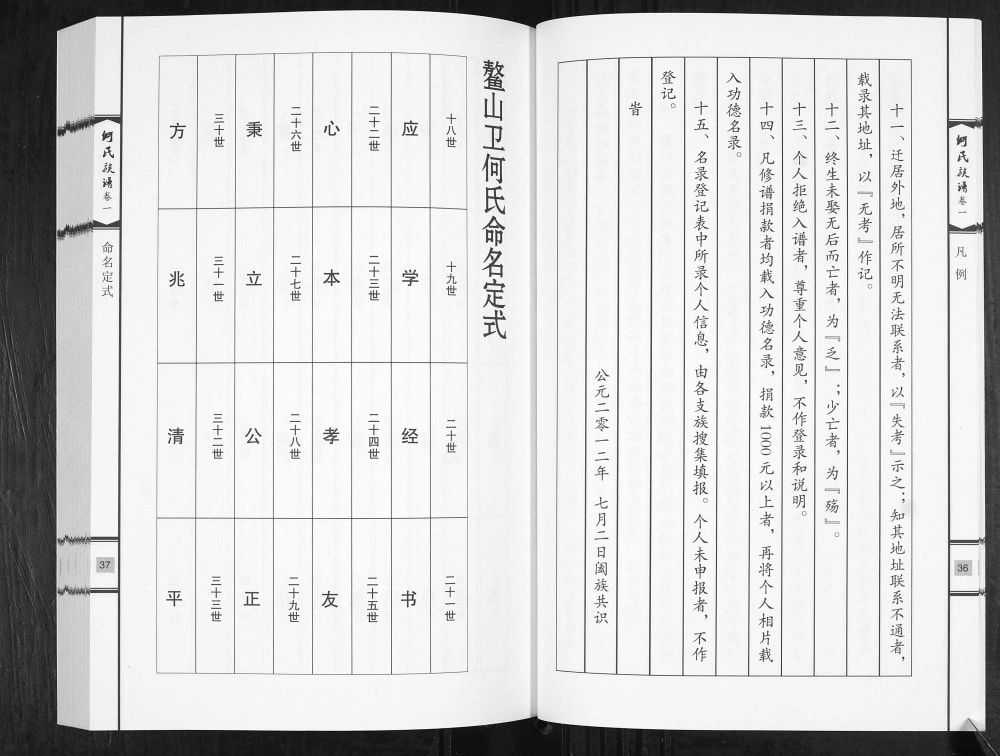 何氏族谱 卷一
凡例
36
十一、迁居外地，居所不明无法联系者，以『失考』示之；知其地址联系不通者，
载录其地址，以『无考』作记。
十二、终生未娶无后而亡者，为『乏』；少亡者，为『殇』。
十三、个人拒绝入谱者，尊重个人意见，不作登录和说明。
十四、凡修谱捐款者均载入功德名录，捐款1000元以上者，再将个人相片载
入功德名录。
十五、名录登记表中所录个人信息，由各支族搜集填报。个人未申报者，不作
登记。
旹
公元二零一二年 七月二日阖族共识
鳌山卫何氏命名定式
十八世 十九世 二十世 二十一世
应 学 经 书
二十二世 二十三世 二十四世 二十五世
心 本 孝 友
二十六世 二十七世 二十八世 二十九世
秉 立 公 正
三十世 三十一世 三十二世 三十三世
方 兆 清 平
何氏族谱 卷一
命名定式
37